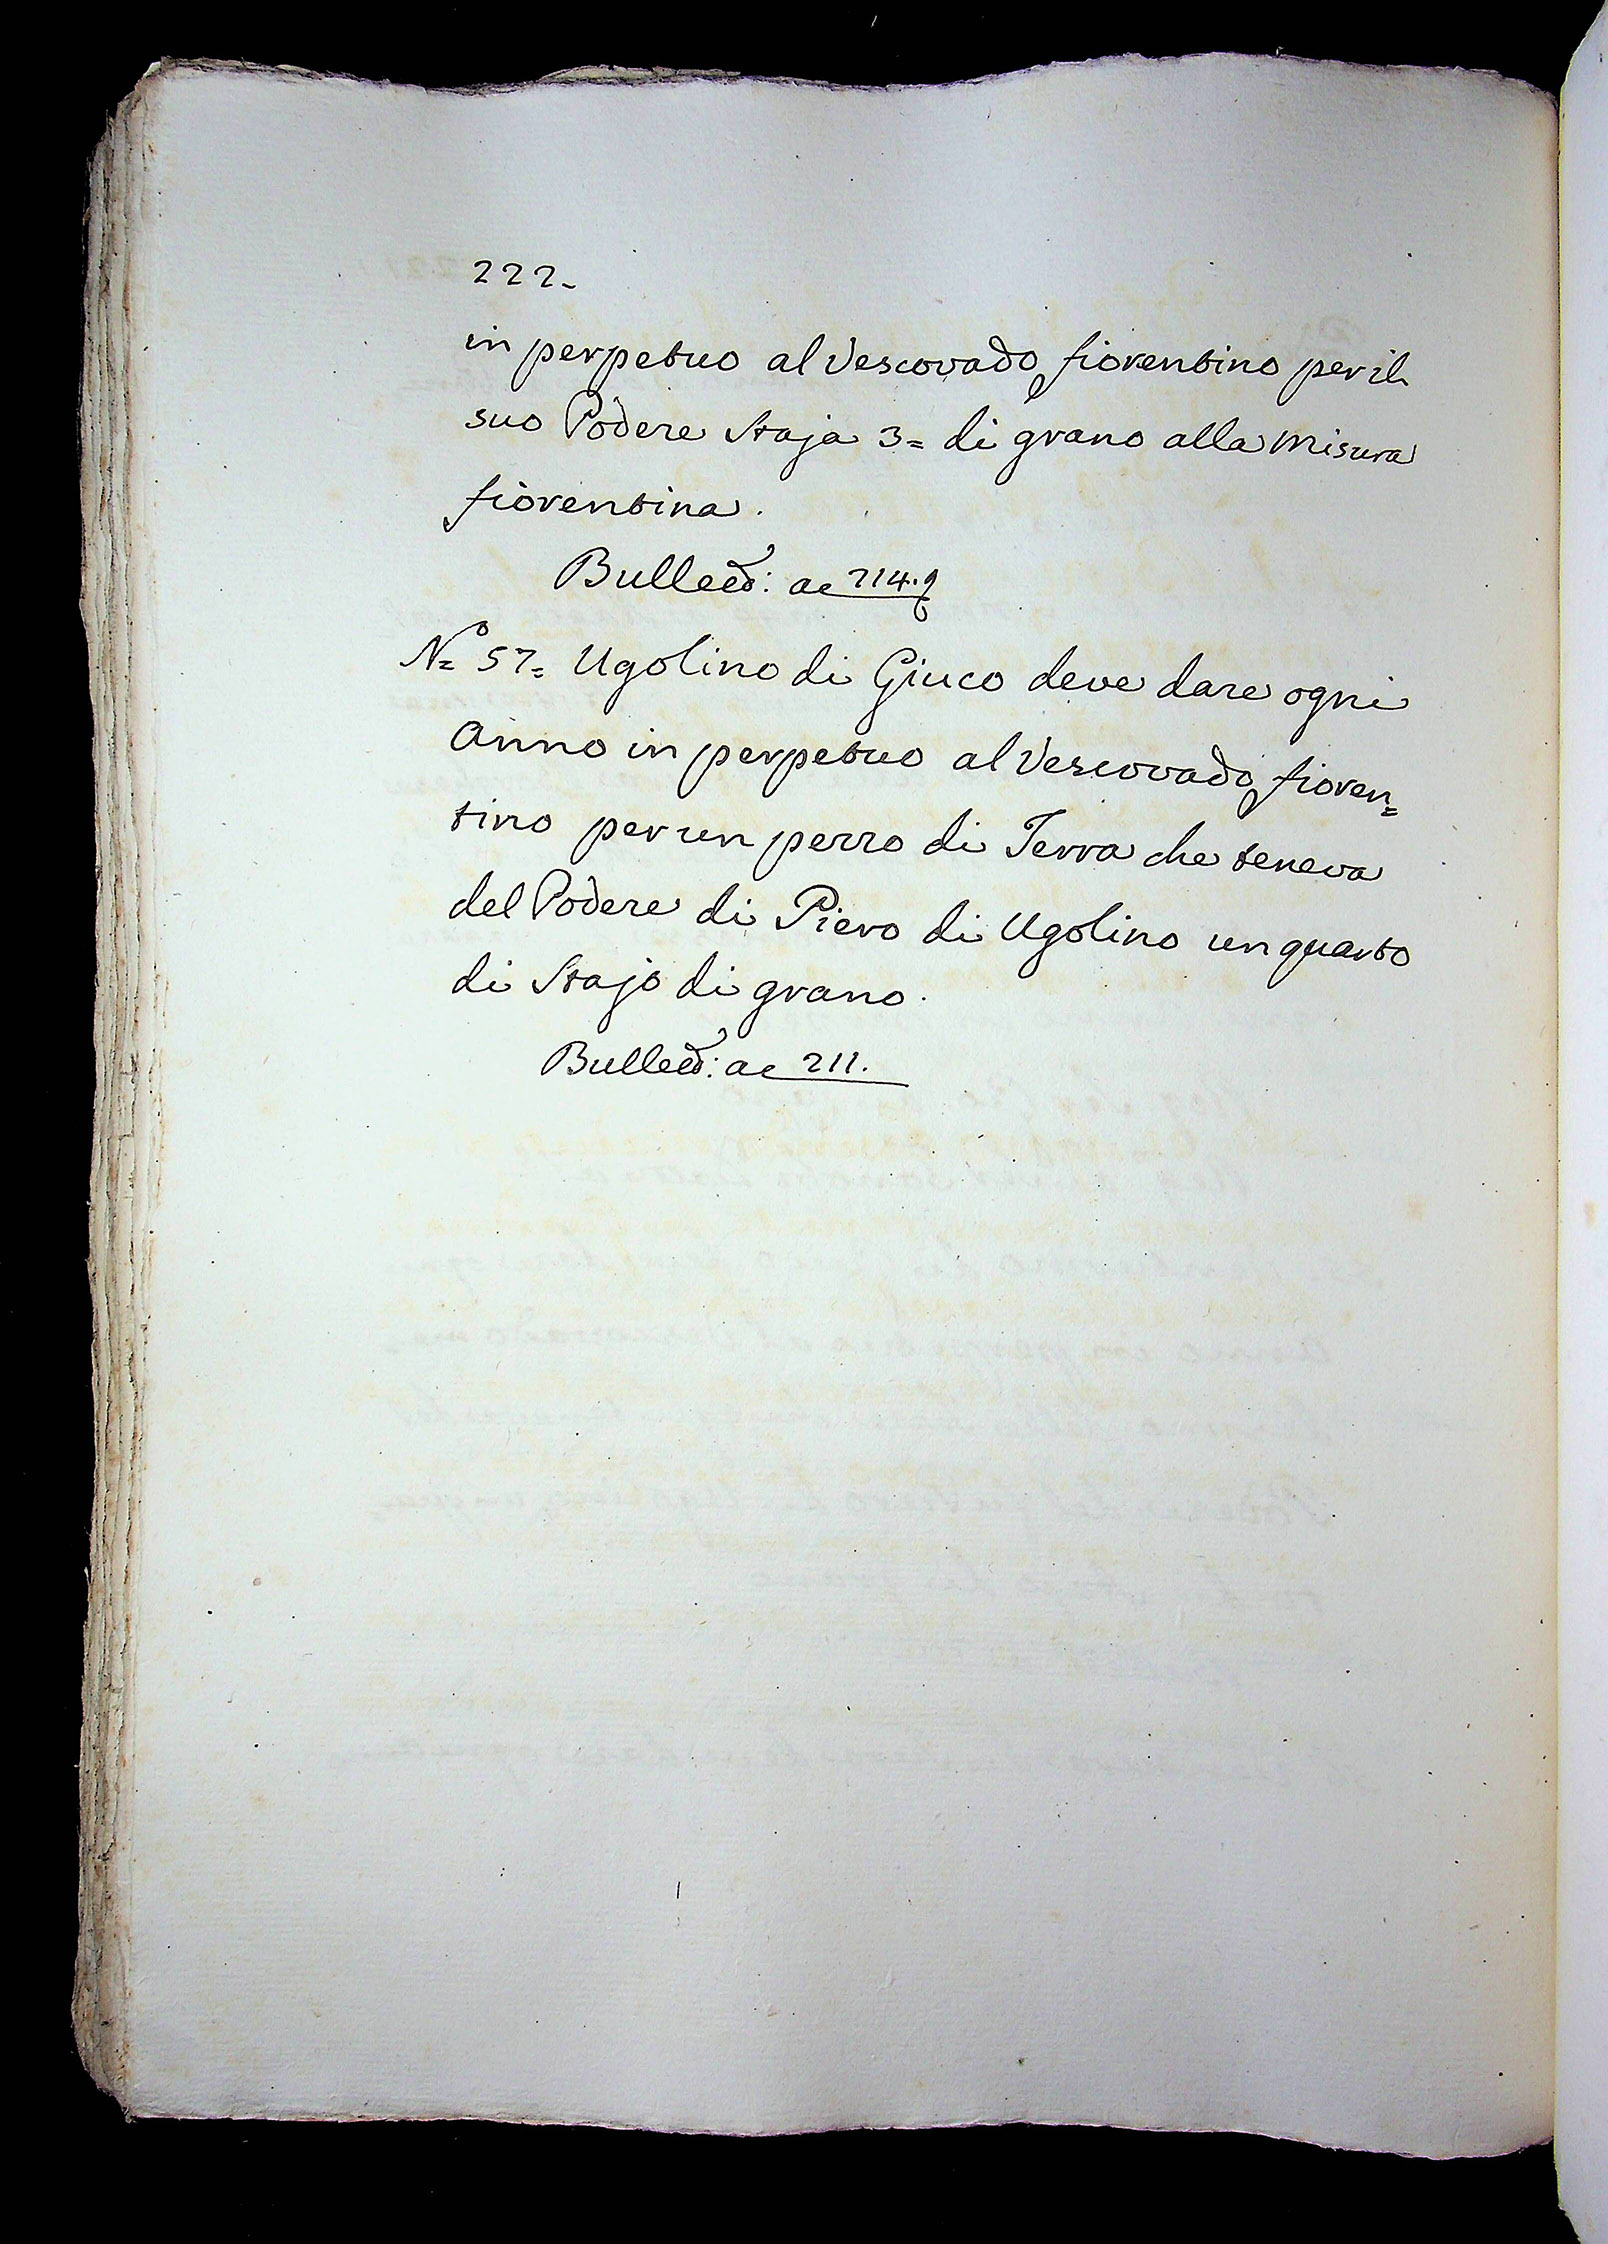 222.
in perpetuo al Vescovado fiorentino per il
suo Podere Staja 3= di grano alla Misura
fiorentina.
Bulled: ac 214.
N.o 57= Ugolino di Giuco deve dare ogni
Anno in perpetuo al Vescovado fioren=
tino per un pezzo di Terra che teneva
del Podere di Piero di Ugolino un quarto
di Stajo di grano.
Bulled: ac 211.